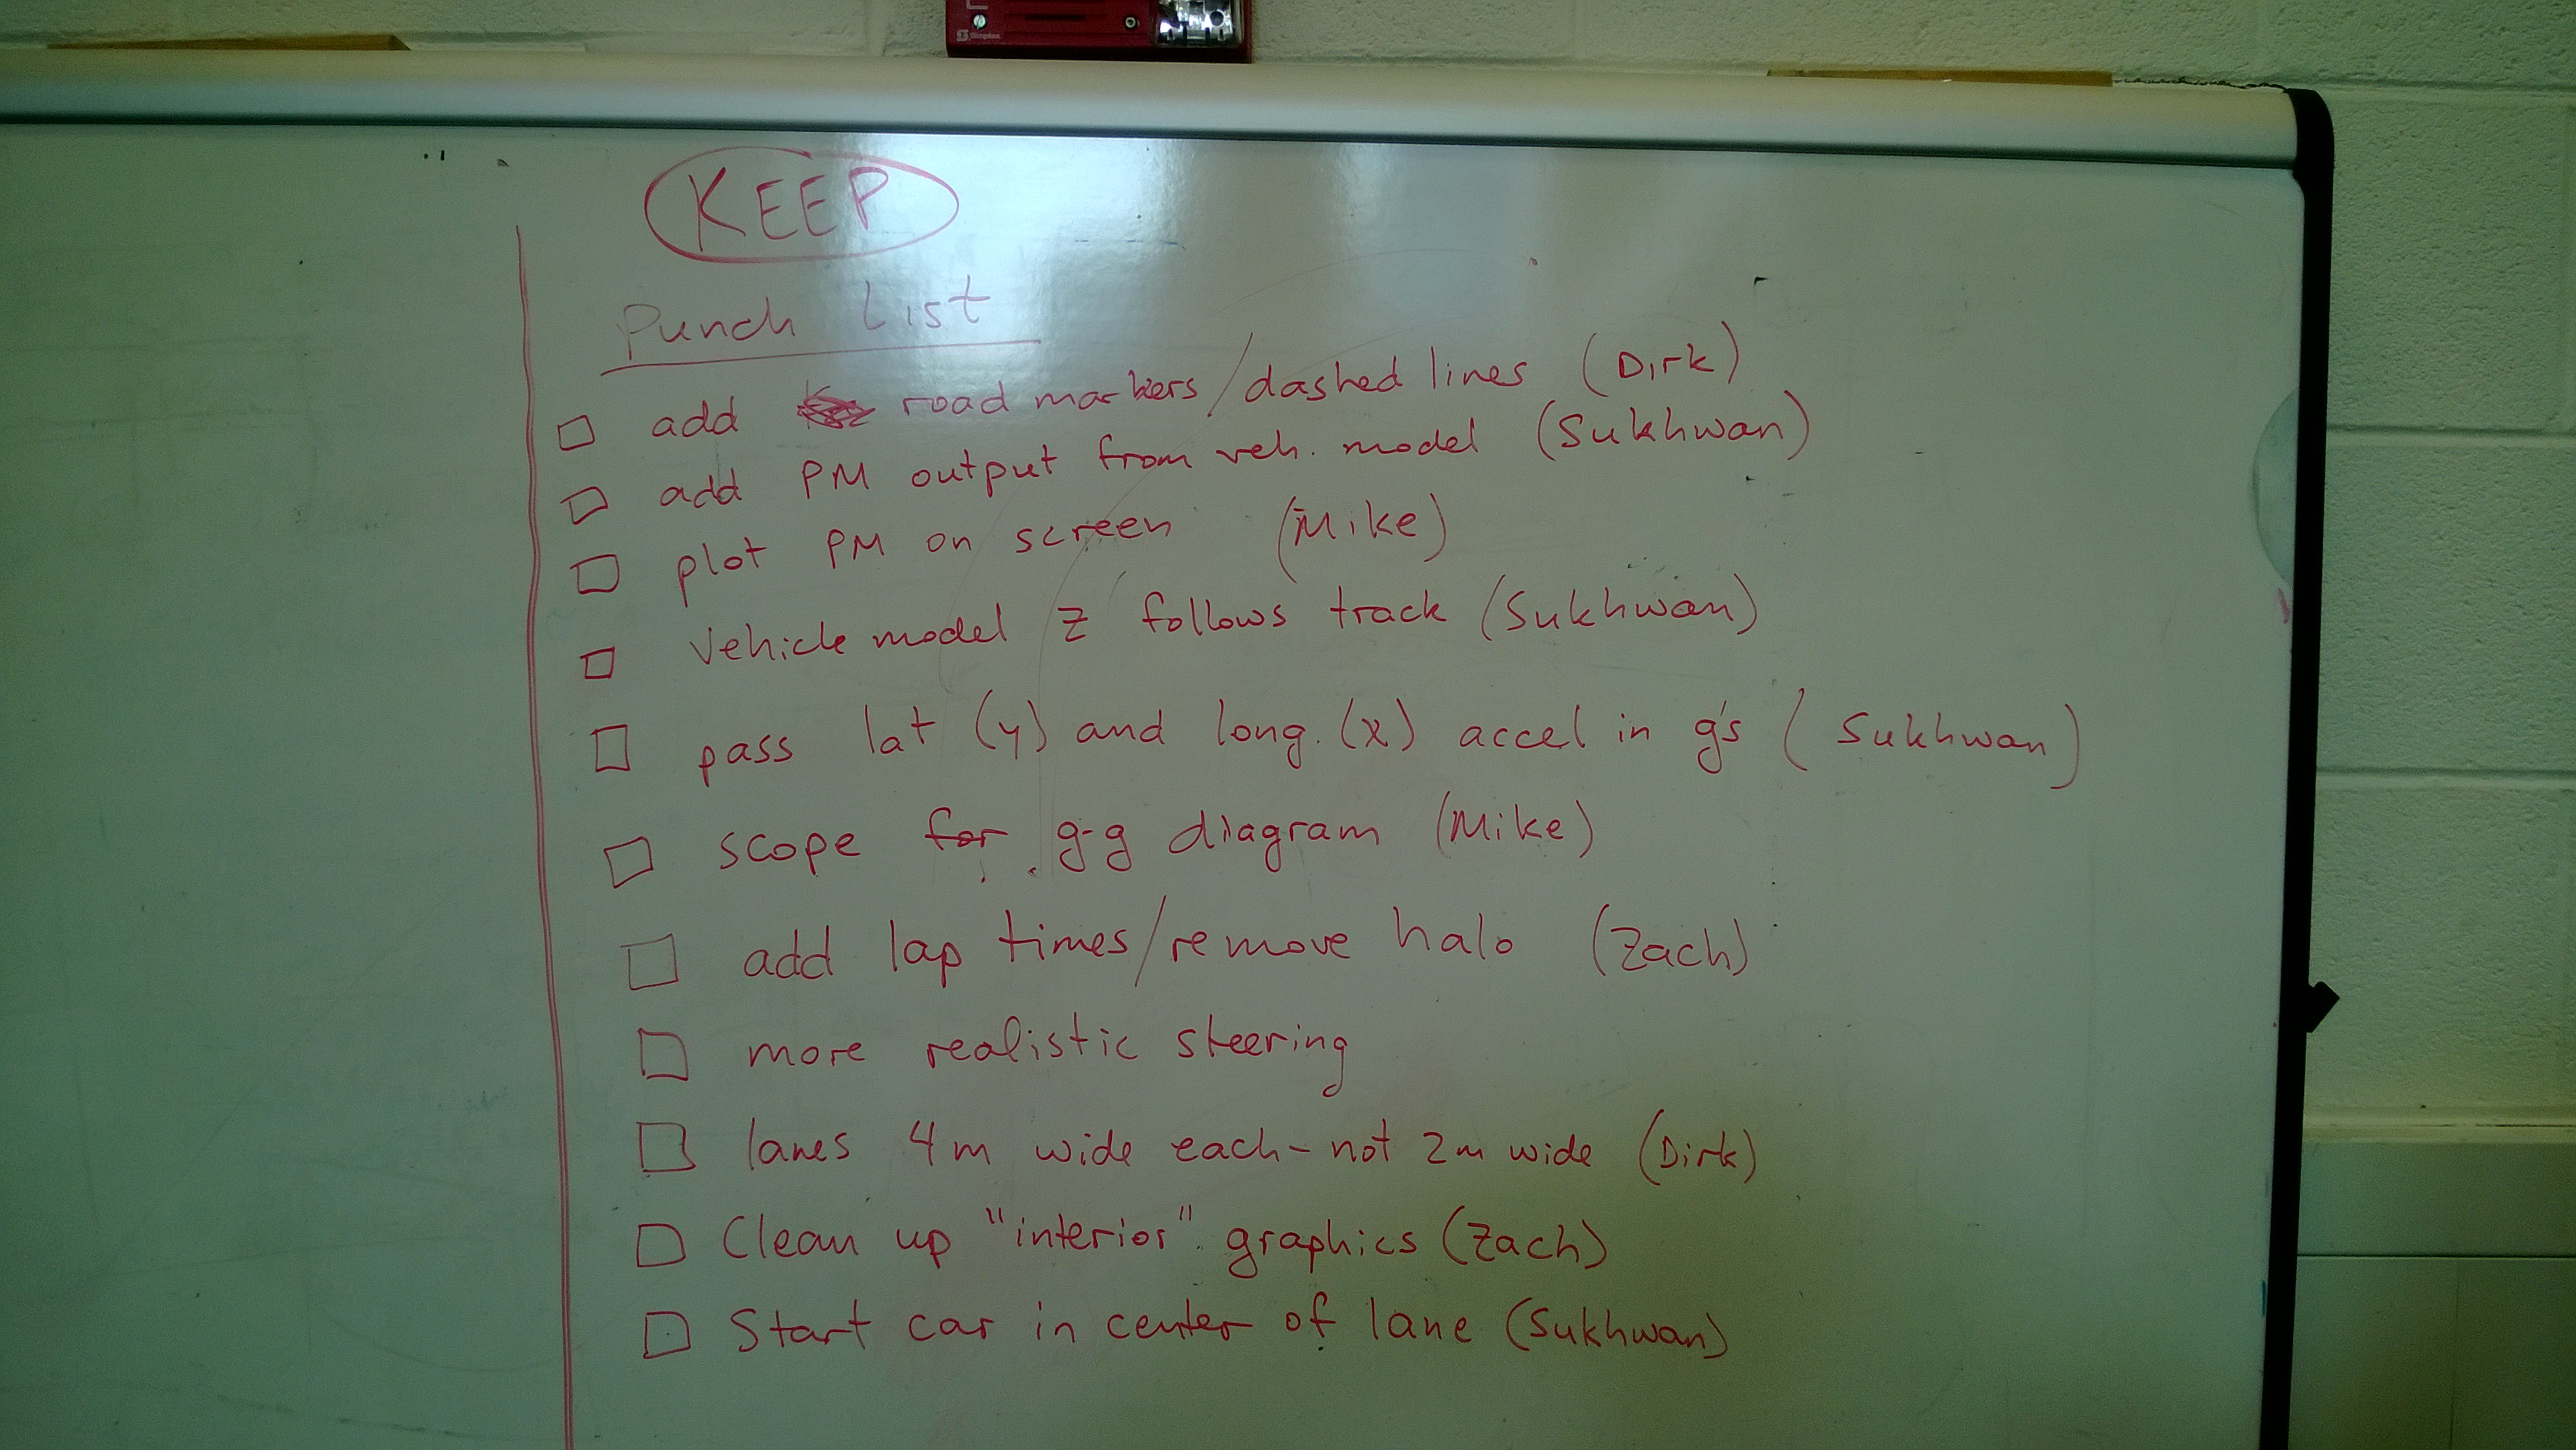 Simplex
KEEP
Punch List
add road markers/dashed lines (Dirk)
add PM output from veh. model (Sukhwan)
plot PM on screen (Mike)
Vehicle model z follows track (Sukhwan)
pass lat (y) and long. (x) accel in g's (Sukhwan)
scope for g-g diagram (Mike)
add lap times/remove halo (Zach)
more realistic steering
lanes 4m wide each - not 2m wide (Dirk)
Clean up "interior" graphics (Zach)
Start car in center of lane (Sukhwan)